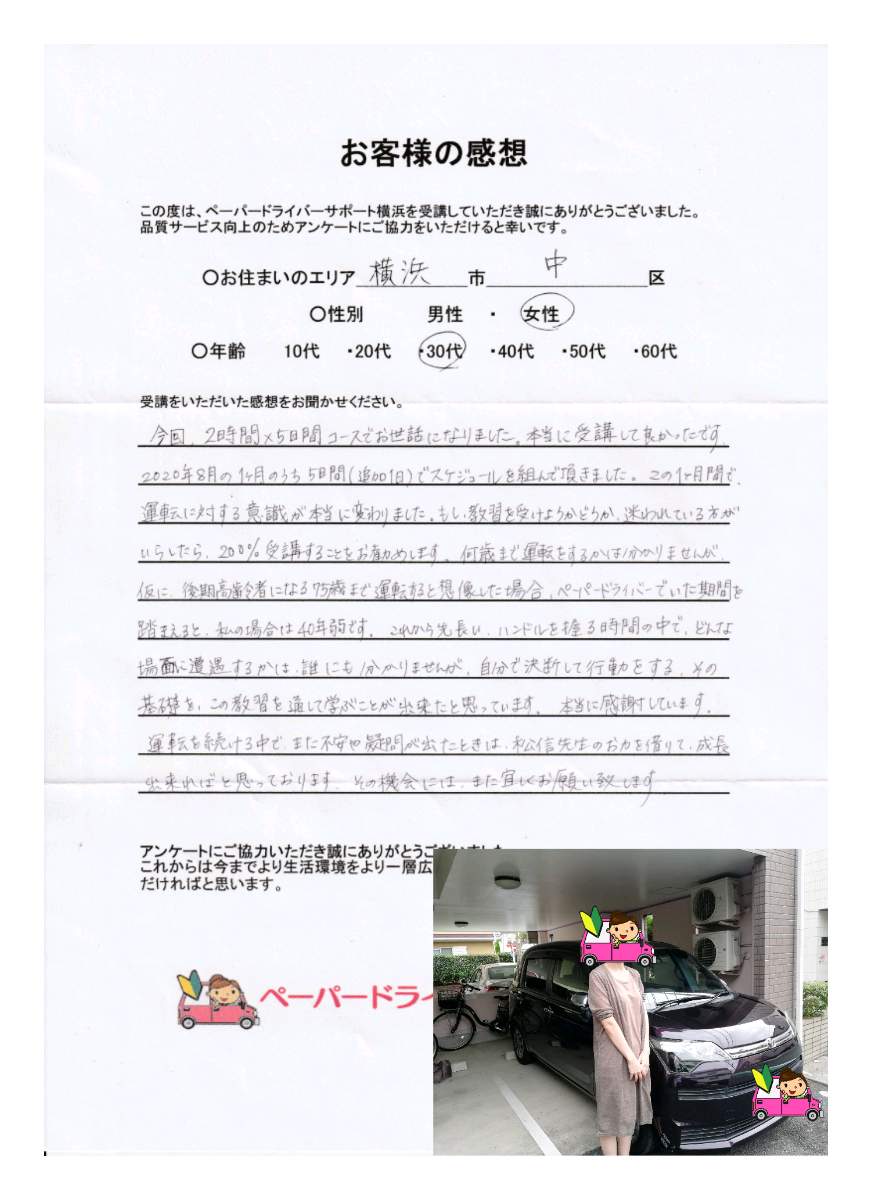 お客様の感想
この度は、ペーパードライバーサポート横浜を受講していただき誠にありがとうございました。
品質サービス向上のためアンケートにご協力をいただけると幸いです。
〇お住まいのエリア 横浜 市 中 区
〇性別 男性 ・ 女性
〇年齢 10代 ・20代 ・30代 ・40代 ・50代 ・60代
受講をいただいた感想をお聞かせください。
今回、2時間×5日間コースでお世話になりました。本当に受講して良かったです。
2020年8月の1ヶ月のうち5日間(追加1日)でスケジュールを組んで頂きました。この1ヶ月間で、
運転に対する意識が本当に変わりました。もし、教習を受けようかどうか、迷われている方が
いらしたら、200%受講することをお勧めします。何歳まで運転をするかは分かりませんが、
仮に、後期高齢者になる75歳まで運転すると想像した場合、ペーパードライバーでいた期間を
踏まえると、私の場合は40年弱です。これから先長い、ハンドルを握る時間の中で、どんな
場面に遭遇するかは、誰にも分かりませんが、自分で決断して行動をする、その
基礎を、この教習を通して学ぶことが出来たと思っています。本当に感謝しています。
運転を続ける中で、また不安や疑問が出たときは、松信先生のお力を借りて、成長
出来ればと思っております。その機会には、また宜しくお願い致します
アンケートにご協力いただき誠にありがとうございました
これからは今までより生活環境をより一層広
だければと思います。
ペーパードライ